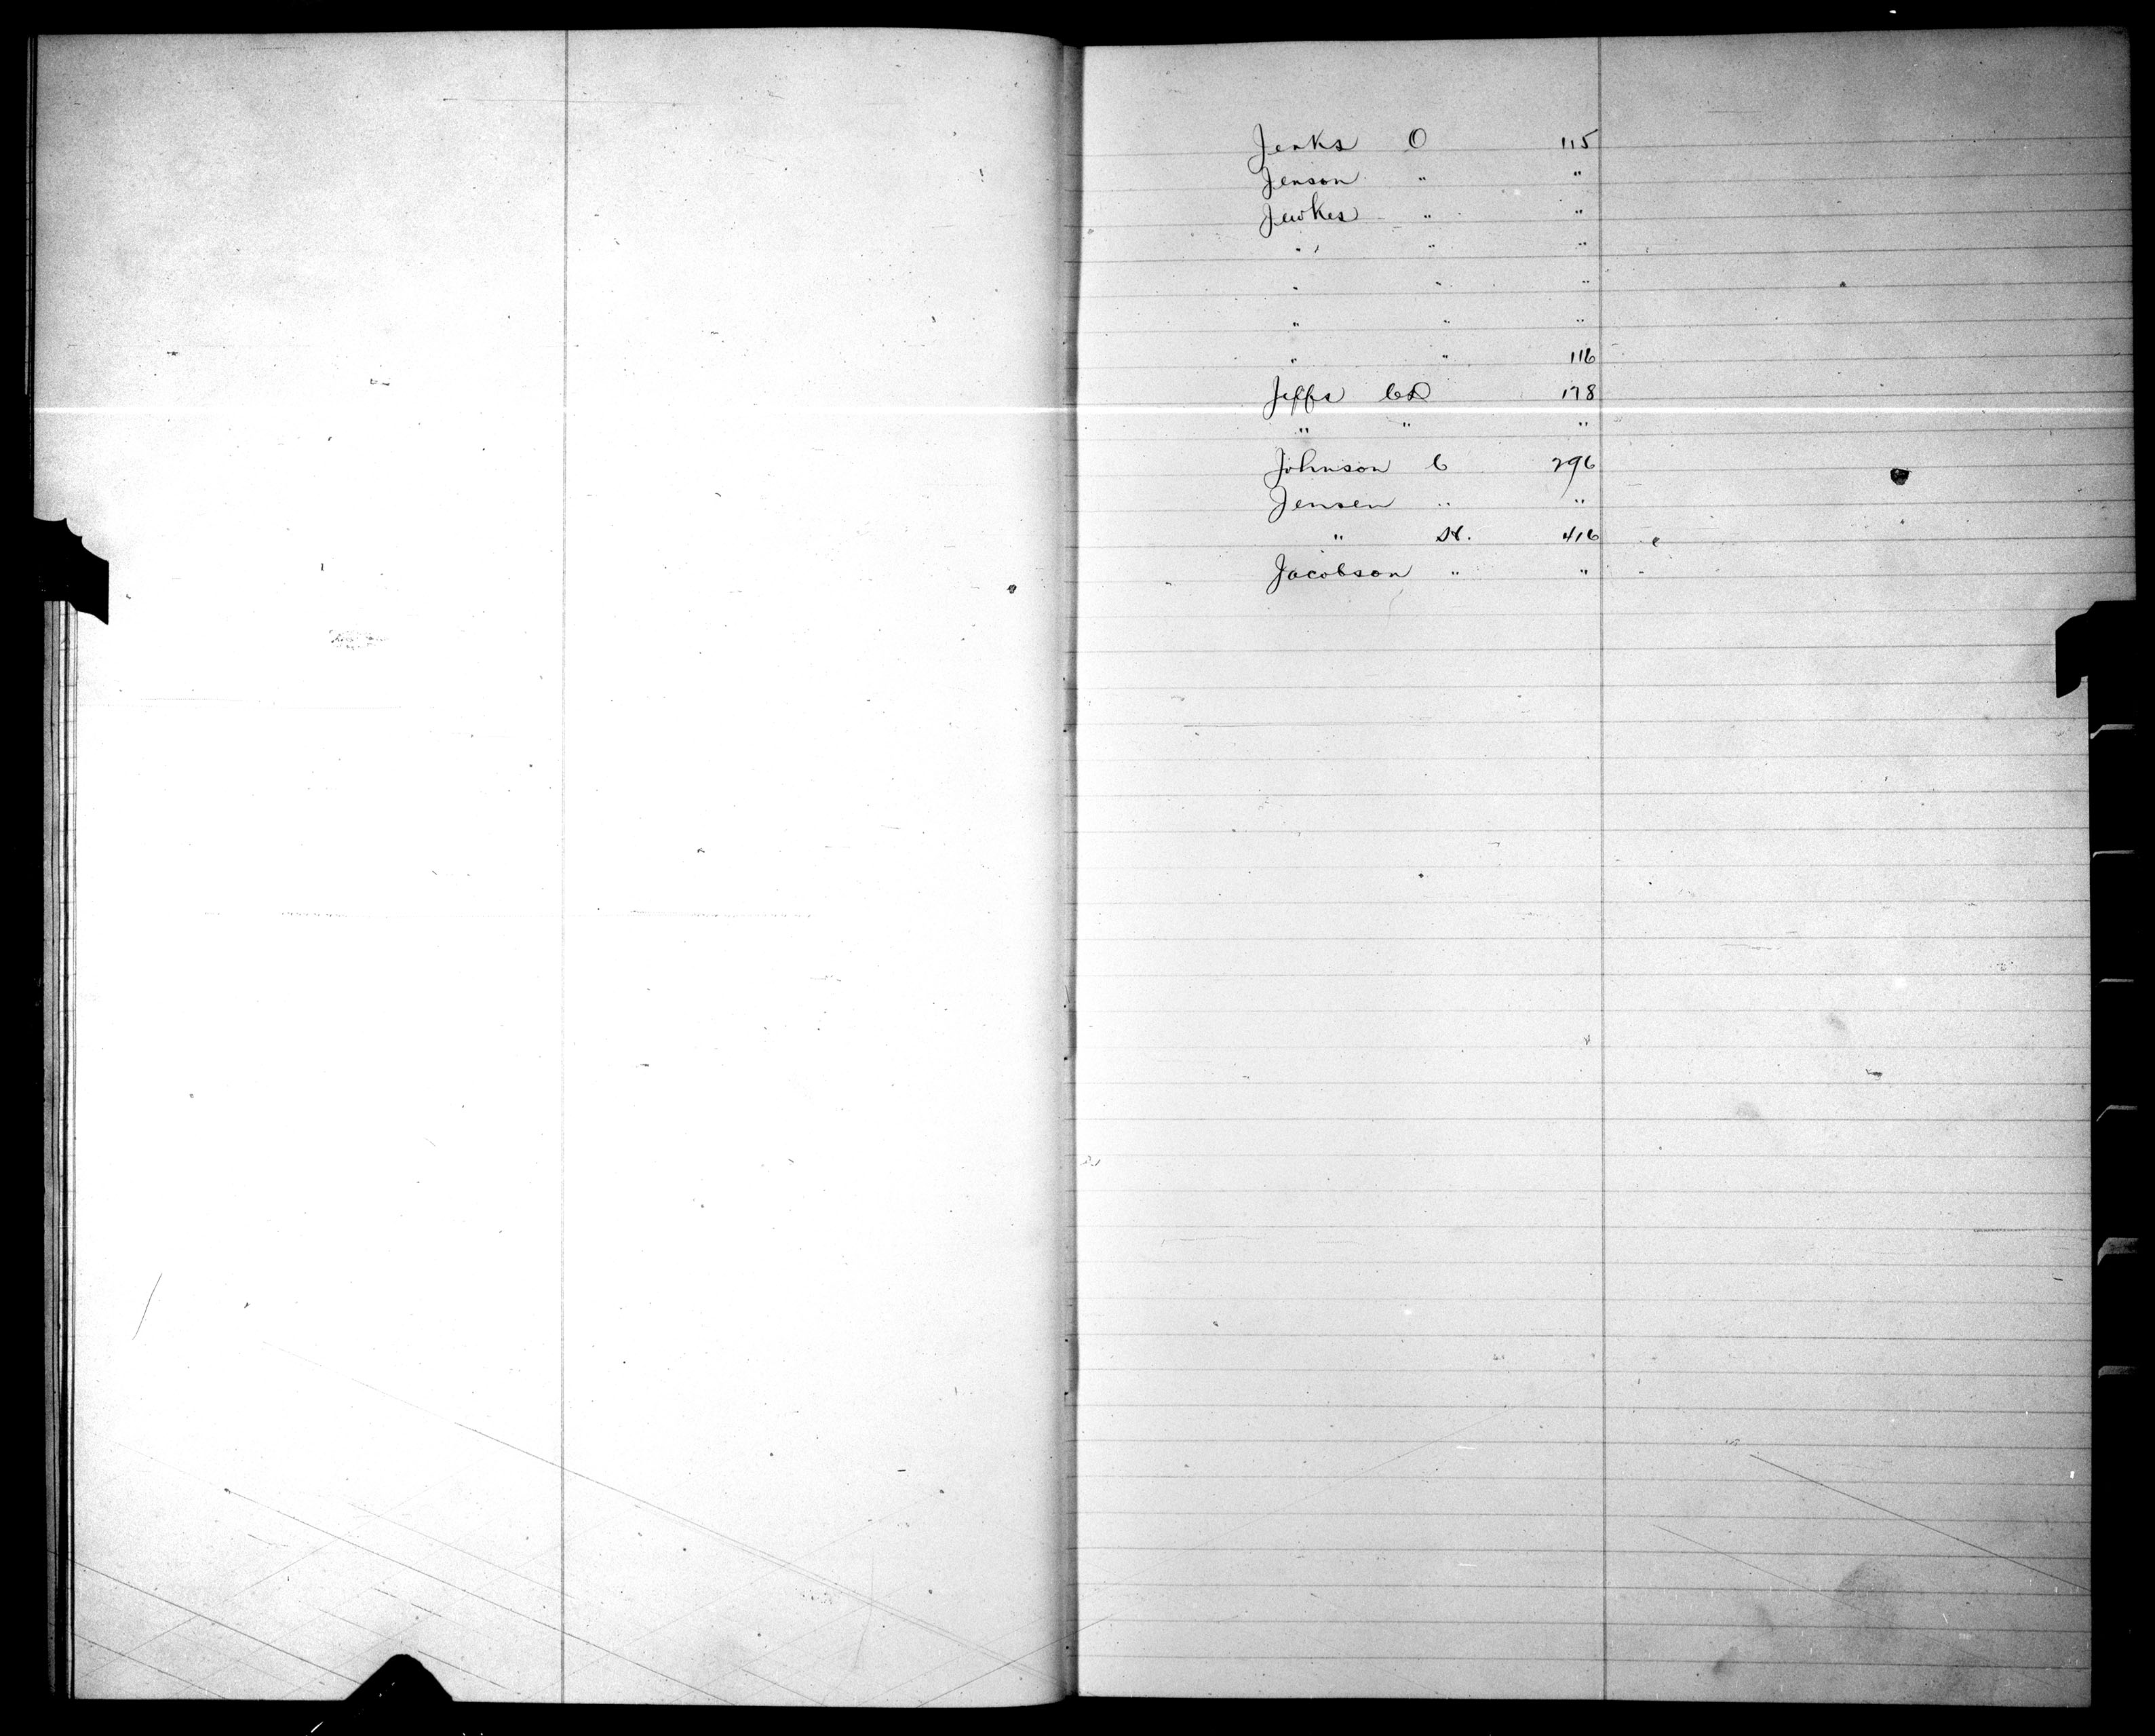 Jenks O 115
Jenson " "
Jewkes " "
" " "
" " "
" " "
" " 116
Jeffs CD 178
" " "
Johnson C 296
Jensen " "
" 416
Jacobson " "